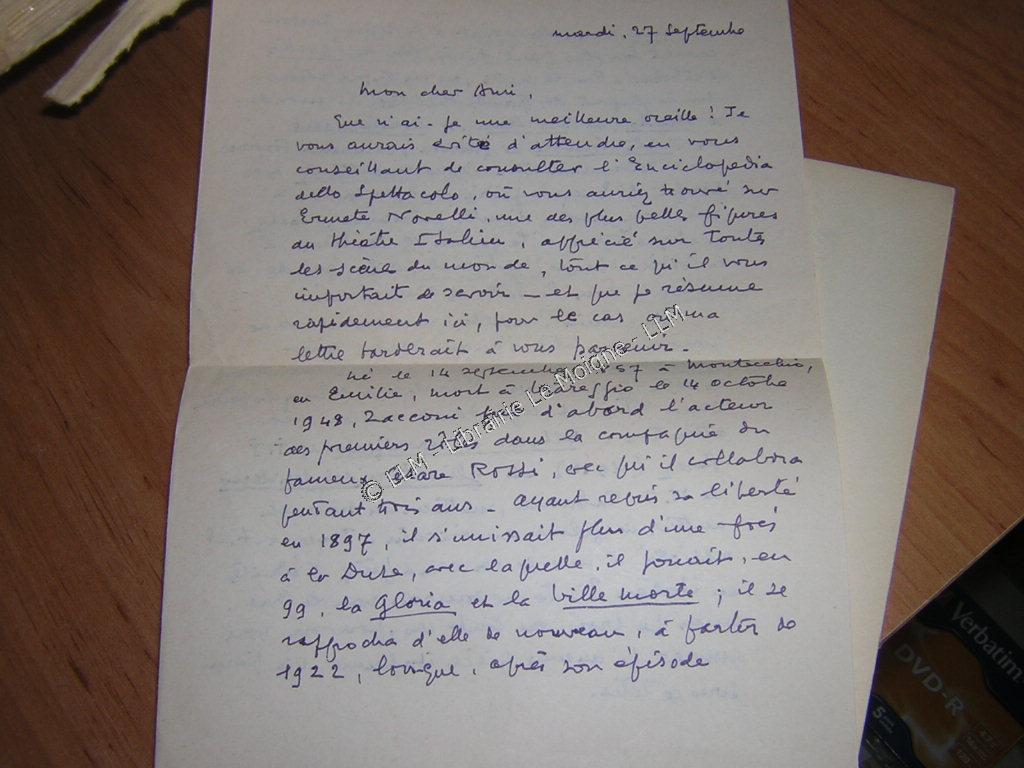 mardi, 27 Septembre
Mon cher Ami,
Que n'ai-je une meilleure oreille ! Je
vous aurais évité d'attendre, en vous
conseillant de consulter l'Enciclopedia
dello Spettacolo, où vous auriez trouvé sur
Ermete Novelli, une des plus belles figures
du théâtre Italien, apprécié sur toutes
les scènes du monde, tout ce qu'il vous
importait de savoir - et que je résume
rapidement ici, pour le cas où ma
lettre tarderait à vous parvenir.
Né le 14 septembre 1857 à Montecchio,
en Emilie, mort à Viareggio le 14 octobre
1948, Zacconi fut d'abord l'acteur
des premiers rôles dans la compagnie du
fameux Cesare Rossi, avec qui il collabora
pendant trois ans - ayant repris sa liberté
en 1897, il s'unissait plus d'une fois
à la Duse, avec laquelle, il jouait, en
99, la Gloria et la Ville morte ; il se
rapprocha d'elle de nouveau, à partir de
1922, lorsque, après son épisode
© ELM - Librairie Le Moigne - LLM
Verbatim
DVD-R
5
4.7